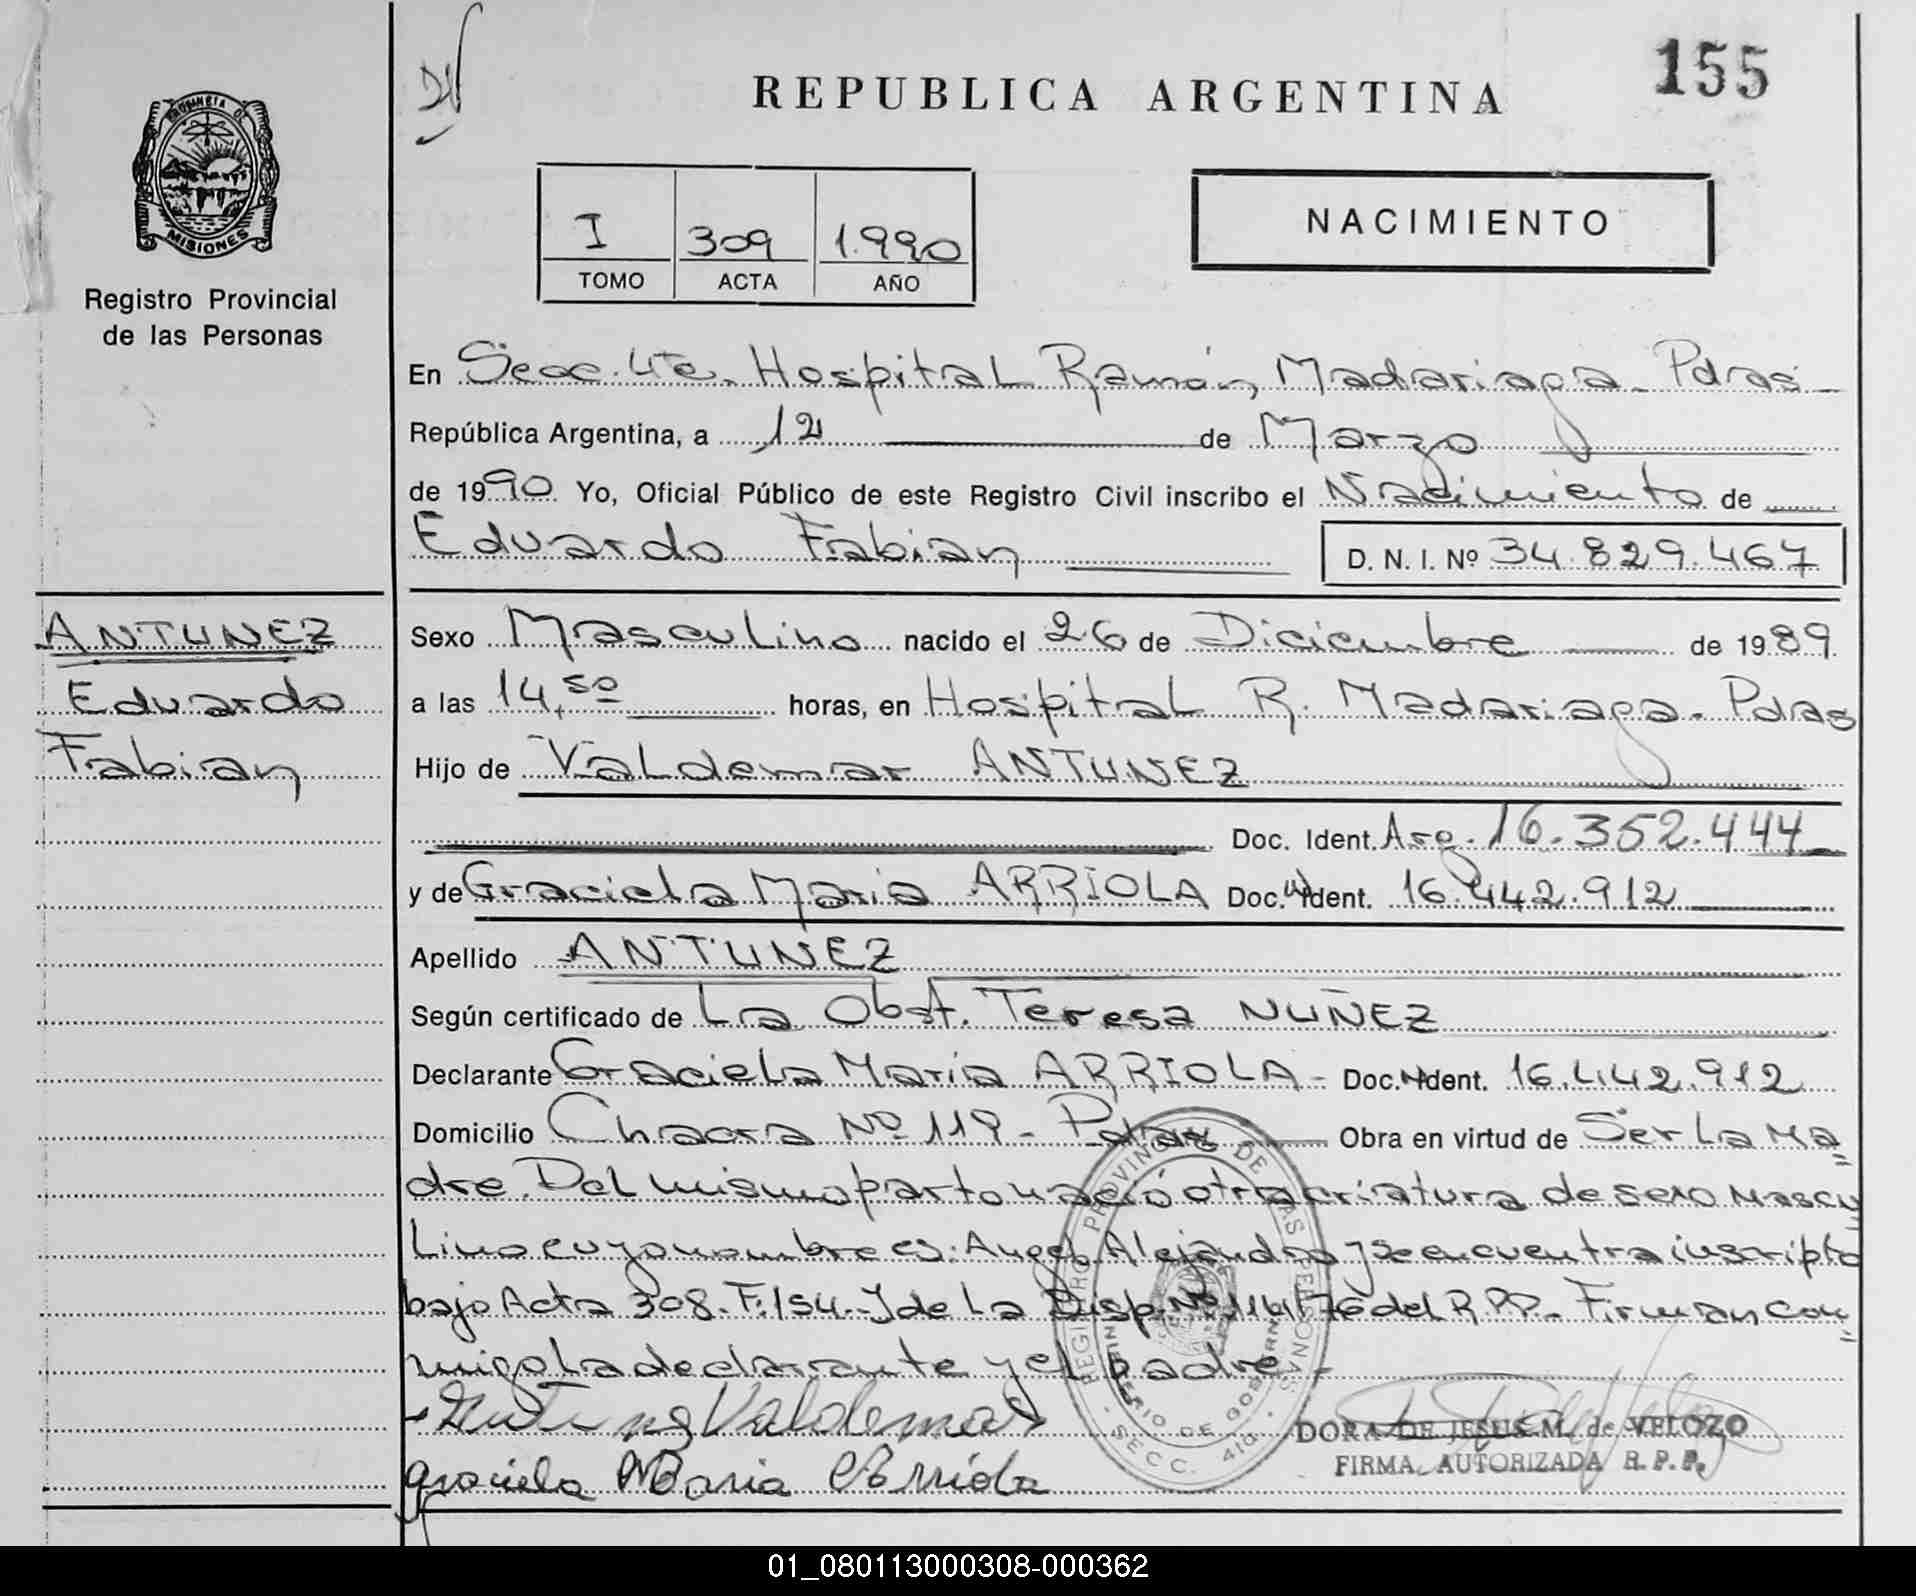 155
REPUBLICA ARGENTINA
PROVINCIA DE
MISIONES
Registro Provincial
de las Personas
I 309 1.990
TOMO ACTA AÑO
NACIMIENTO
En Secc. 4ta. Hospital Ramón, Madariaga - Pdas -
República Argentina, a 12 de Marzo
de 1990 Yo, Oficial Público de este Registro Civil inscribo el Nacimiento de
Eduardo Fabian D. N. I. Nº 34.829.467
ANTUNEZ
Eduardo
Fabian
Sexo Masculino nacido el 26 de Diciembre de 1989
a las 14,50 horas, en Hospital R. Madariaga - Pdas
Hijo de Valdemar ANTUNEZ
Doc. Ident. Arg. 16.352.444
y de Graciela Maria ARRIOLA Doc. Ident. 16.442.912
Apellido ANTUNEZ
Según certificado de La Obst. Teresa NUÑEZ
Declarante Graciela Maria ARRIOLA - Doc. Ident. 16.442.912
Domicilio Chacra Nº 119 - Pdas Obra en virtud de Ser La Ma
dre. Del mismo parto nació otra criatura de sexo Mascu
Lino cuyo nombre es: Angel Alejandro y se encuentra inscripto
bajo Acta 308 - F: 154 - I de La Disp. Nº 116/76 del R.P.P. - Firman con
migo La declarante y el padre -
Antunez Valdemar
Graciela Maria Arriola
REGISTRO PROVINCIAL DE LAS PERSONAS
MINISTERIO DE GOBIERNO
SECC. 4ta.
DORA DE JESUS M. de VELOZO
FIRMA AUTORIZADA R. P. P.
01_080113000308-000362